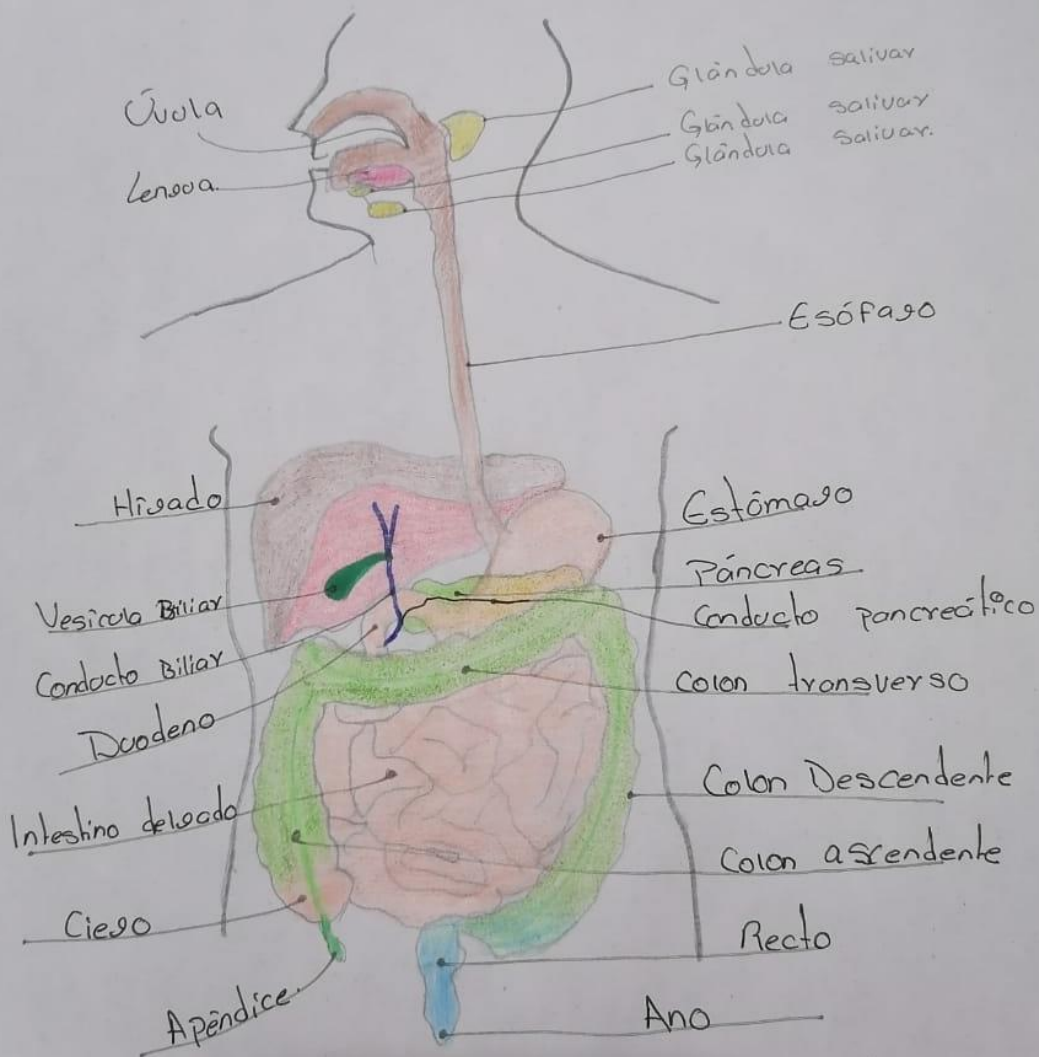 Úvula
Lengua
Glándula salivar
Glándula salivar
Glándula salivar.
Esófago
Higado
Vesicula Biliar
Conducto Biliar
Duodeno
Intestino delgado
Ciego
Apéndice
Estómago
Páncreas
Conducto pancreático
Colon transverso
Colon Descendente
Colon ascendente
Recto
Ano